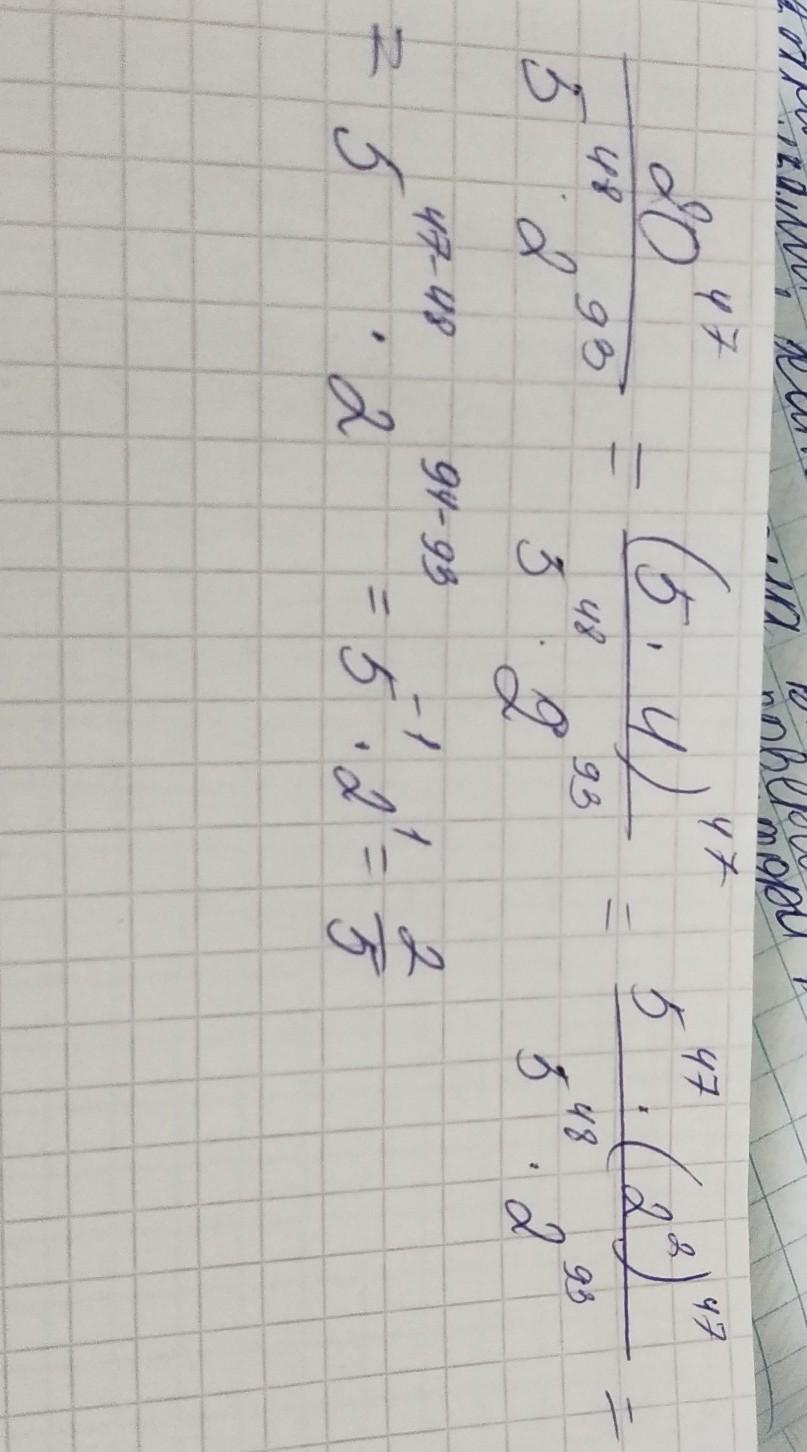 20^47 / (5^48 · 2^93) = (5 · 4)^47 / (5^48 · 2^93) = 5^47 · (2^2)^47 / (5^48 · 2^93) =
= 5^(47-48) · 2^(94-93) = 5^(-1) · 2^1 = 2/5